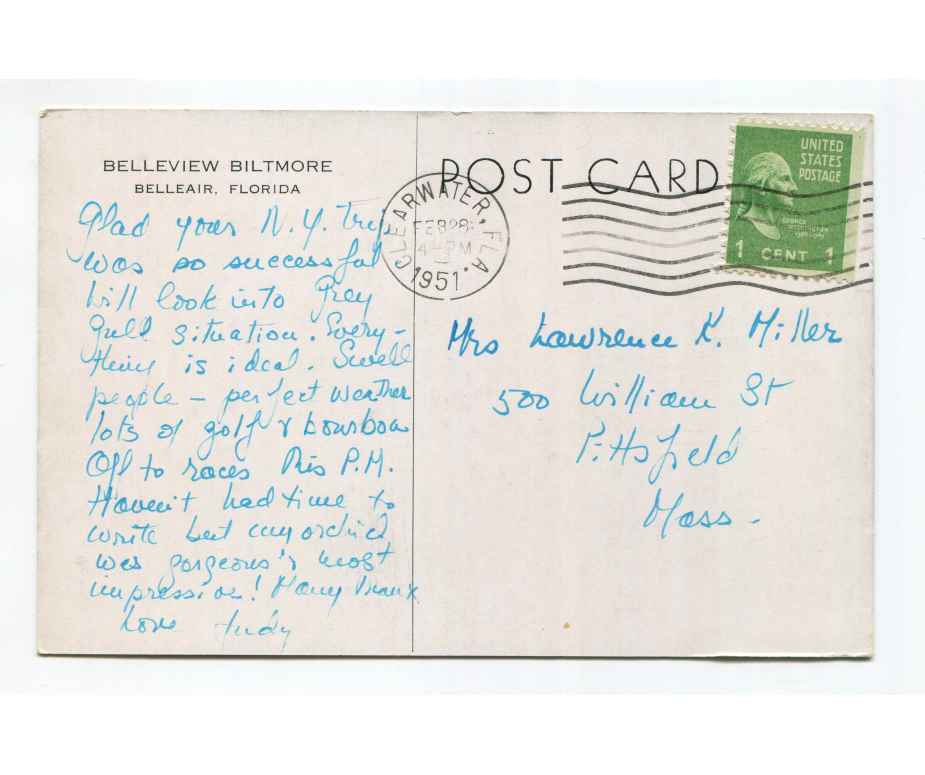 BELLEVIEW BILTMORE
BELLEAIR, FLORIDA
Glad your N.Y. trip
was so successful
Will look into Grey
Gull situation. Every-
thing is ideal. Swell
people – perfect weather
lots of golf & bourbon
Off to races this P.M.
Haven't had time to
write but my orchid
was gorgeous & most
impressive! Many Thanx
Love Judy
POST CARD
CLEARWATER, FLA.
FEB 28
4 PM
1951
UNITED
STATES
POSTAGE
GEORGE
WASHINGTON
1 CENT 1
Mrs Lawrence K. Miller
500 William St
Pittsfield
Mass.